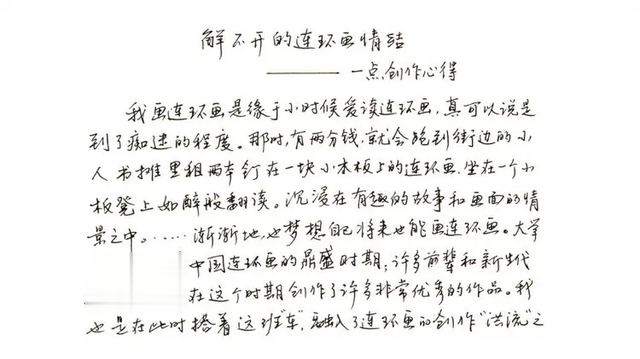 解不开的连环画情结
——一点创作心得
我画连环画是缘于小时候爱读连环画，真可以说是
到了痴迷的程度。那时，有两分钱，就会跑到街边的小
人书摊里租两本钉在一块小木板上的连环画，坐在一个小
板凳上如醉般翻读。沉浸在有趣的故事和画面的情
景之中。……渐渐地，也梦想自己将来也能画连环画。大学
中国连环画的鼎盛时期，许多前辈和新生代
在这个时期创作了许多非常优秀的作品。我
也是在此时搭着这班“车”，融入了连环画的创作“洪流”之